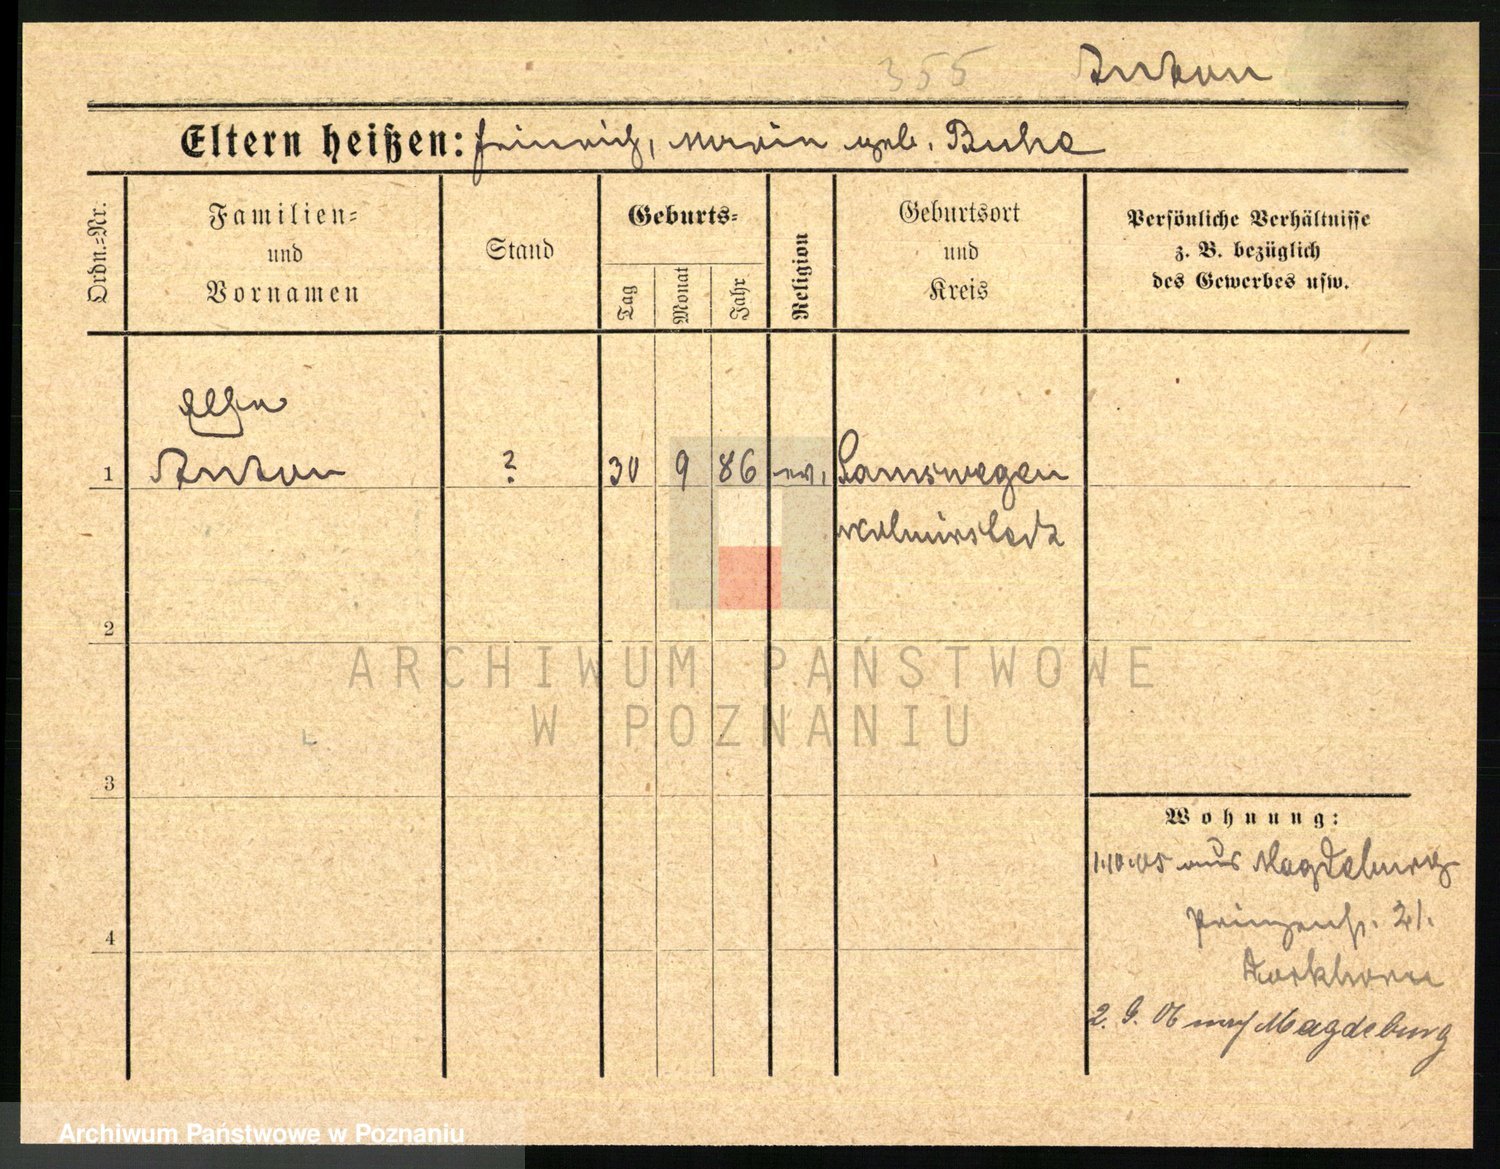 355 Anton
Eltern heißen: Heinrich, Marie geb. Buhe
Ordn.=Nr.
Familien=
und
Vornamen
Stand
Geburts=
Tag
Monat
Jahr
Religion
Geburtsort
und
Kreis
Persönliche Verhältnisse
z. B. bezüglich
des Gewerbes usw.
1 Anton ? 30 9 86 ev. Samswegen
Wolmirstedt
2
3
4
ARCHIWUM PAŃSTWOWE
W POZNANIU
Wohnung:
1.10.05 aus Magdeburg
Prinzenstr. 21.
2. 9. 06 nach Magdeburg
Archiwum Państwowe w Poznaniu